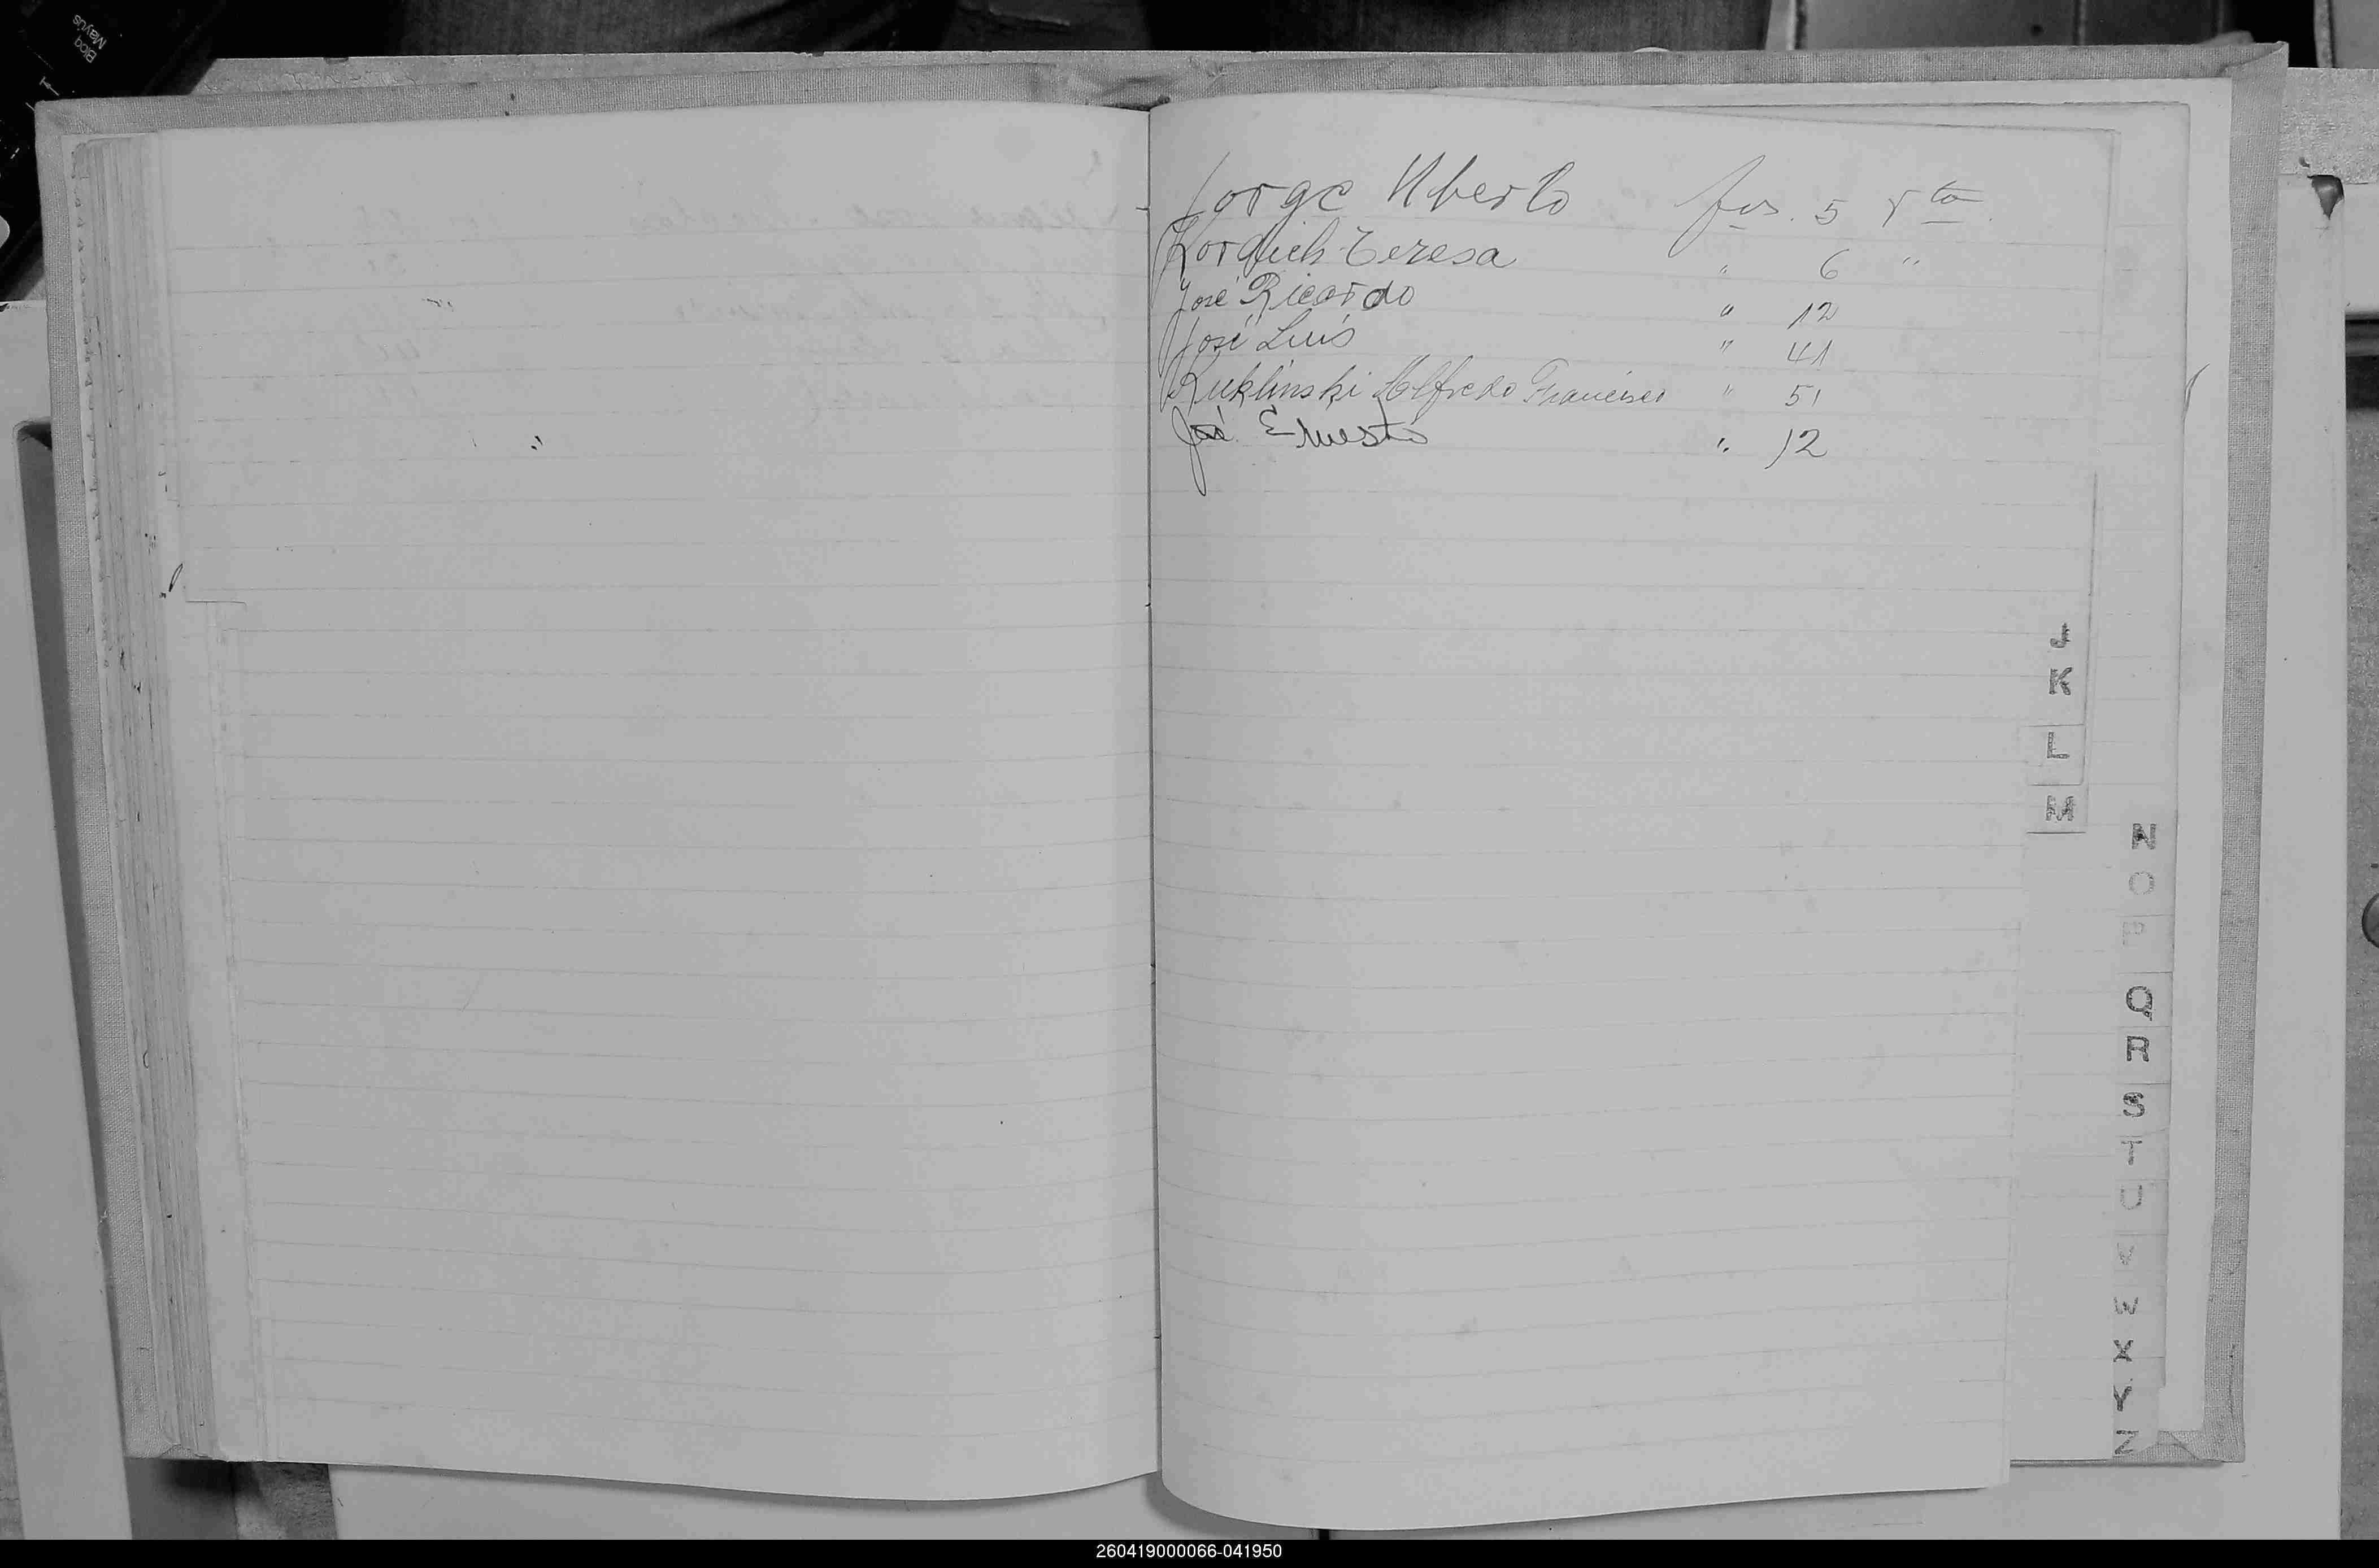 Jorge Alberto fjs. 5 Vto.
Kordich Teresa " 6 "
José Ricardo " 12
José Luis " 41
Kuklinski Alfredo Francisco " 51
José Ernesto " 12
J
K
L
M
N
O
P
Q
R
S
T
U
V
W
X
Y
Z
Bloq
Mayús
260419000066-041950